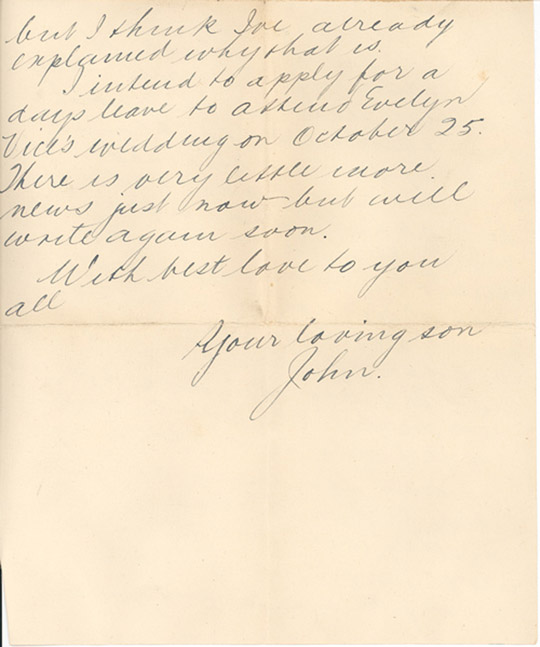 but I think I've already
explained why that is.
I intend to apply for a
days leave to attend Evelyn
Vice's wedding on October 25.
There is very little more
news just now but will
write again soon.
With best love to you
all
Your loving son
John.